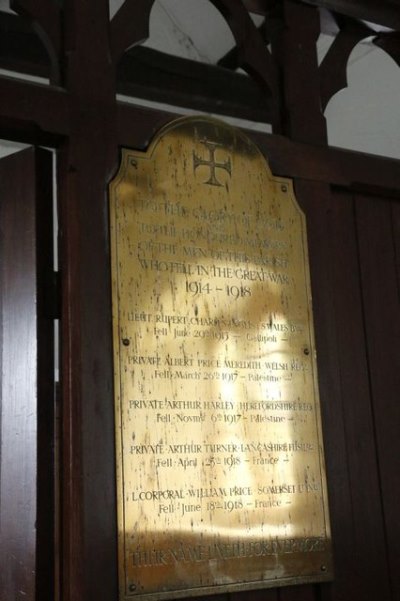 TO THE GLORY OF GOD
AND
TO THE HONOURED MEMORY
OF THE MEN OF THIS PARISH
WHO FELL IN THE GREAT WAR
1914 - 1918
LIEUT RUPERT CHARLES S. WALES B
Fell June 20th 1915 - Gallipoli -
PRIVATE ALBERT PRICE MEREDITH - WELSH REGT
- Fell - March 26th 1917 - Palestine -
PRIVATE ARTHUR HARLEY - HEREFORDSHIRE REG
Fell - Novmr 6th 1917 - Palestine -
PRIVATE ARTHUR TURNER - LANCASHIRE FUS
Fell - April 25th 1918 - France -
L. CORPORAL - WILLIAM PRICE - SOMERSET L. INF
Fell - June 18th 1918 - France -
THEIR NAME LIVETH FOR EVERMORE